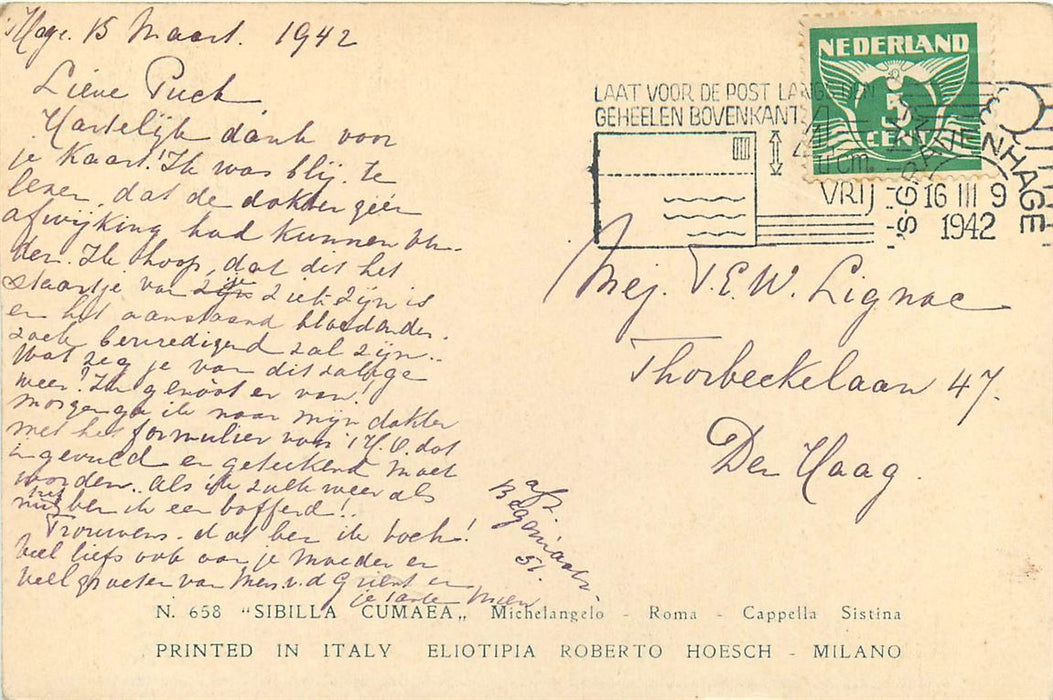 's Hage. 15 Maart. 1942
Lieve Puck
Hartelijk dank voor
je Kaart! Ik was blij te
lezen, dat de dokter geen
afwijking had kunnen vin-
den. Ik hoop, dat dit het
staartje van ziek zijn is
en het aanstaand bloedonder-
zoek bevredigend zal zijn..
Wat zeg je van dit zalige
weer? Ik genoot er van!
Morgen ga ik naar mijn dokter
met het formulier van 't H.O. dat
ingevuld en getekend moet
worden. Als ik zulk weer als
nu heb ben ik een bofferd!..
Trouwens. dat ben ik toch!
Veel liefs ook aan je Moeder en
veel groeten van Mevr. v. d Grient en
je tante Mien
afz.
Begoniastr.
51.
NEDERLAND
5
CENT
LAAT VOOR DE POST LANGS DEN
GEHEELEN BOVENKANT
4
cm
VRIJ
'S-GRAVENHAGE
16 III 9
1942
Mej. V.E.W. Lignac
Thorbeckelaan 47.
Den Haag.
N. 658 "SIBILLA CUMAEA„ Michelangelo - Roma - Cappella Sistina
PRINTED IN ITALY ELIOTIPIA ROBERTO HOESCH - MILANO